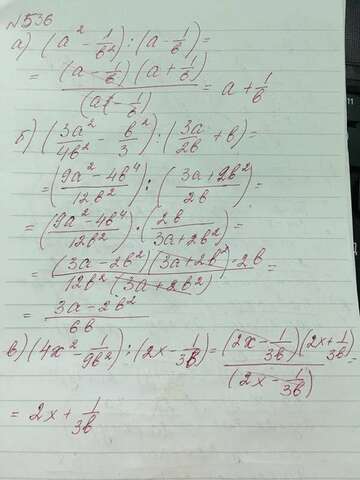 №536
а) (a² - 1/b²) : (a - 1/b) =
= (a - 1/b)(a + 1/b) / (a - 1/b) = a + 1/b
б) (3a²/4b² - b²/3) : (3a/2b + b) =
= (9a² - 4b⁴ / 12b²) : (3a + 2b² / 2b) =
= (9a² - 4b⁴ / 12b²) · (2b / 3a + 2b²) =
= (3a - 2b²)(3a + 2b²) · 2b / 12b² (3a + 2b²) =
= 3a - 2b² / 6b
в) (4x² - 1/9b²) : (2x - 1/3b) = (2x - 1/3b)(2x + 1/3b) / (2x - 1/3b) =
= 2x + 1/3b